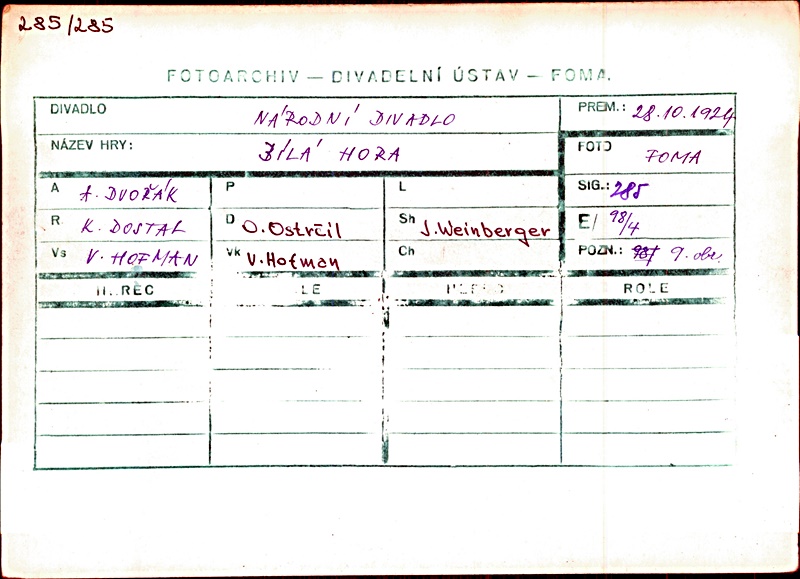 285/285
FOTOARCHIV — DIVADELNÍ ÚSTAV — FOMA.
DIVADLO NÁRODNÍ DIVADLO PREM.: 28.10.1924
NÁZEV HRY: BÍLÁ HORA FOTO FOMA
A A. DVOŘÁK P L SIG.: 285
R K. DOSTAL D O. Ostrčil Sh J. Weinberger E/ 98/4
Vs V. HOFMAN Vk V. Hofman Ch POZN.: 9. obr.
HEREC ROLE HEREC ROLE